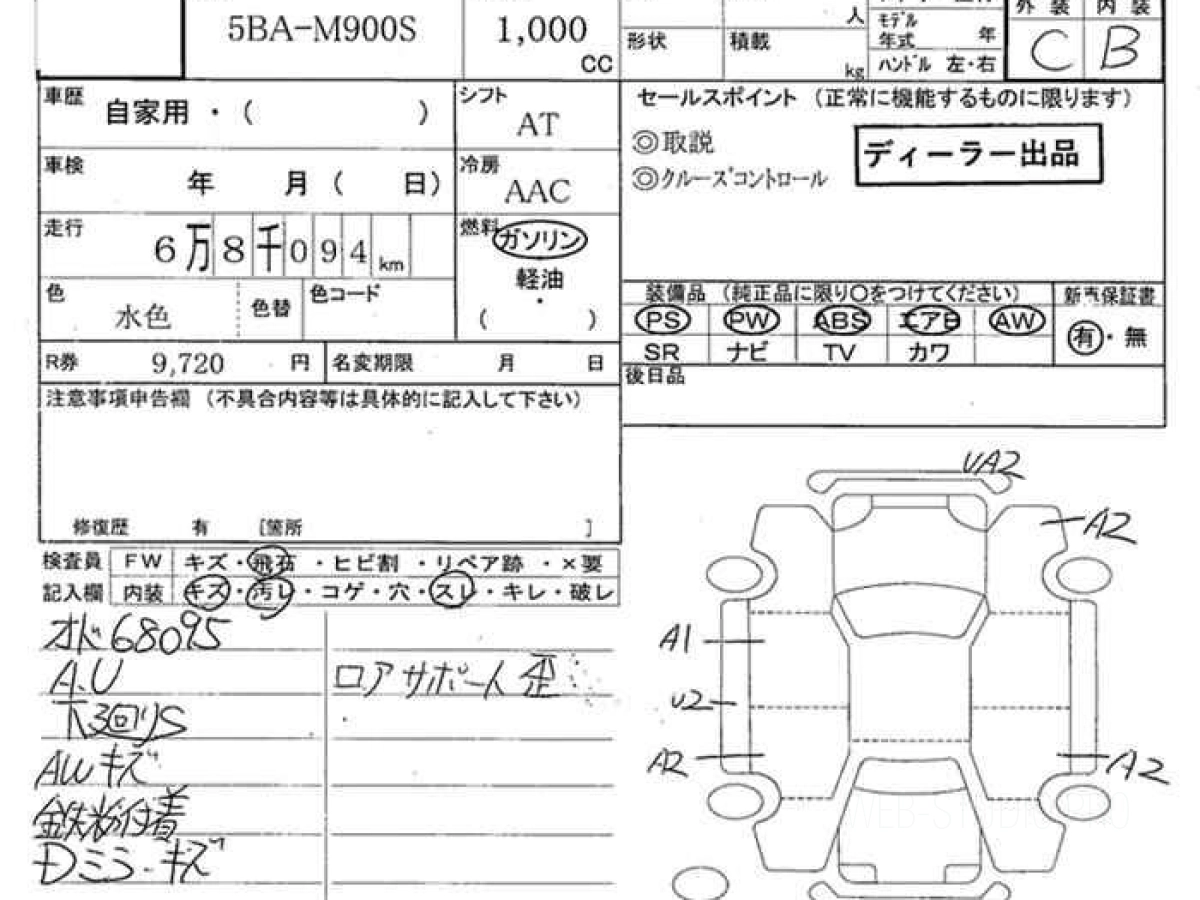 5BA-M900S
1,000
CC
形状
積載
人
kg
モデル
年式
年
ハンドル 左・右
外装
内装
C
B
車歴
自家用・( )
シフト
AT
車検
年 月( 日)
冷房
AAC
走行
6万8千094km
燃料
ガソリン
軽油
・
( )
色
水色
色替
色コード
R券 9,720 円
名変期限 月 日
注意事項申告欄(不具合内容等は具体的に記入して下さい)
修復歴 有 [箇所 ]
セールスポイント(正常に機能するものに限ります)
◎取説
◎クルーズコントロール
ディーラー出品
装備品(純正品に限り〇をつけてください)
新車保証書
PS PW ABS エアB AW
有・無
SR ナビ TV カワ
後日品
検査員
記入欄
FW キズ・飛石・ヒビ割・リペア跡・×要
内装 キズ・汚レ・コゲ・穴・スレ・キレ・破レ
オド68095
A.U
下回りS
AWキズ
鉄粉付着
Dミラーキズ
ロアサポート歪
UA2
A2
A1
U2
A2
A2